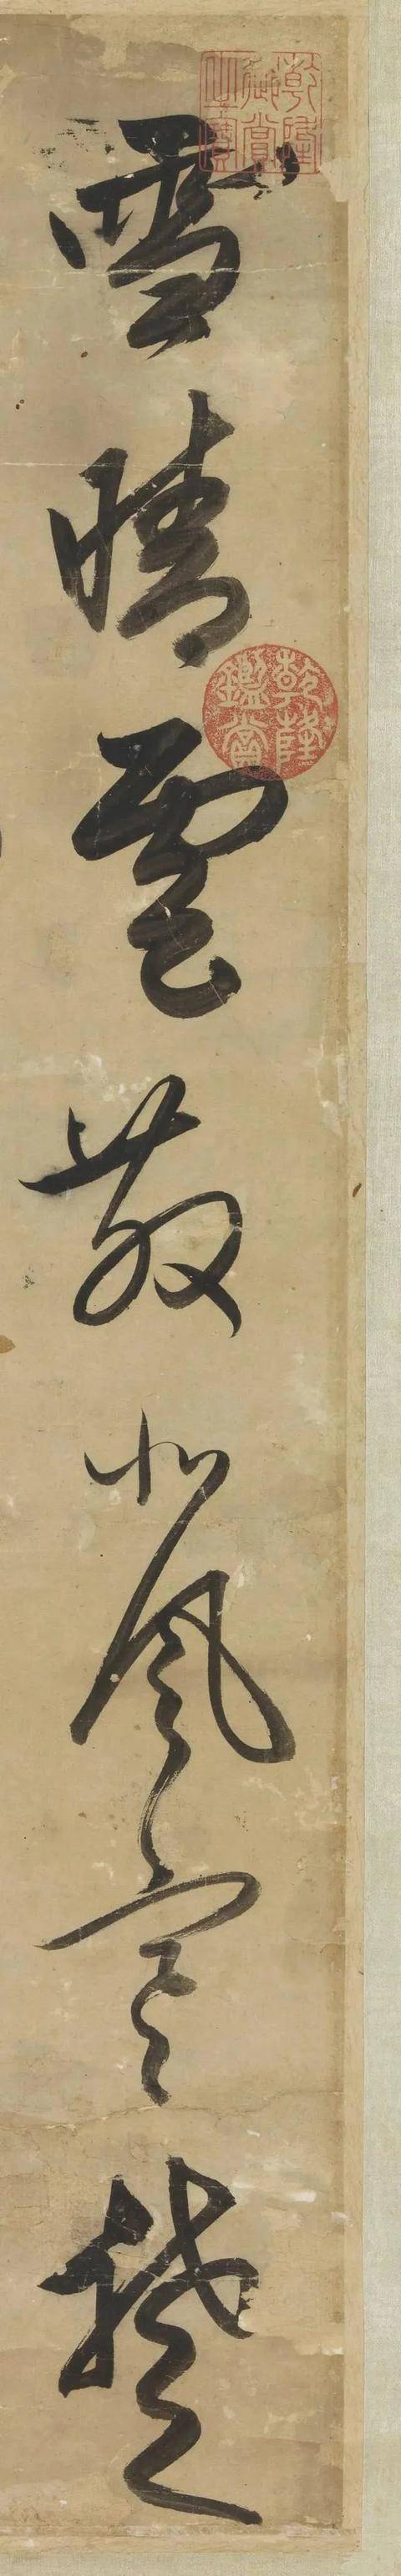 雪晴雲散北風寒楚
乾隆御賞之寶
乾隆鑑賞